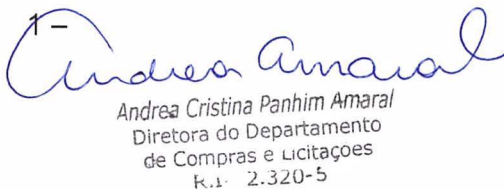 1 –
Andrea Amaral
Andrea Cristina Panhim Amaral
Diretora do Departamento
de Compras e Licitações
R.I. 2.320-5